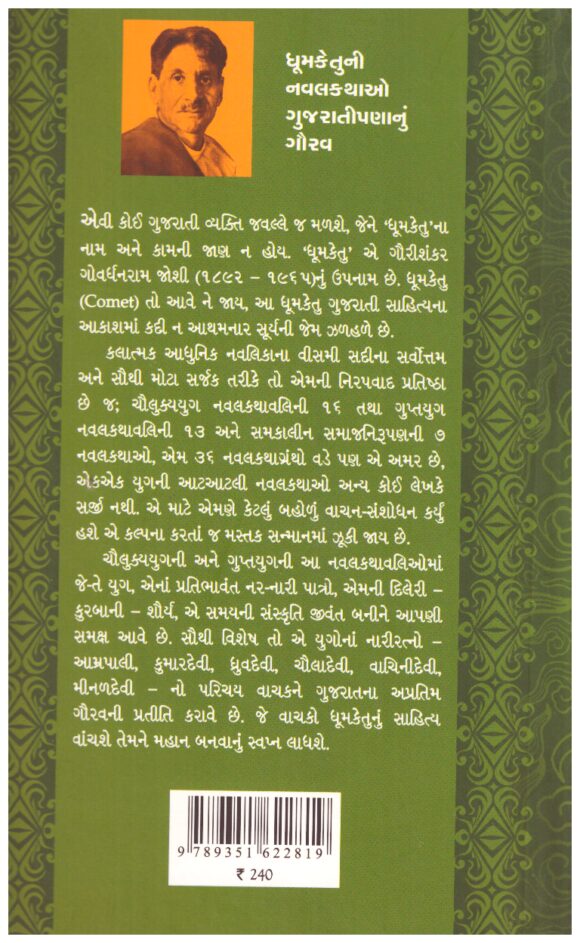 ધૂમકેતુની
નવલકથાઓ
ગુજરાતીપણાનું
ગૌરવ
એવી કોઈ ગુજરાતી વ્યક્તિ જવલ્લે જ મળશે, જેને ‘ધૂમકેતુ’ના
નામ અને કામની જાણ ન હોય. ‘ધૂમકેતુ’ એ ગૌરીશંકર
ગોવર્ધનરામ જોશી (૧૮૯૨ – ૧૯૬૫)નું ઉપનામ છે. ધૂમકેતુ
(Comet) તો આવે ને જાય, આ ધૂમકેતુ ગુજરાતી સાહિત્યના
આકાશમાં કદી ન આથમનાર સૂર્યની જેમ ઝળહળે છે.
કલાત્મક આધુનિક નવલિકાના વીસમી સદીના સર્વોત્તમ
અને સૌથી મોટા સર્જક તરીકે તો એમની નિરપવાદ પ્રતિષ્ઠા
છે જ; ચૌલુક્યયુગ નવલકથાવલિની ૧૬ તથા ગુપ્તયુગ
નવલકથાવલિની ૧૩ અને સમકાલીન સમાજનિરૂપણની ૭
નવલકથાઓ, એમ ૩૬ નવલકથાગ્રંથો વડે પણ એ અમર છે,
એકએક યુગની આટઆટલી નવલકથાઓ અન્ય કોઈ લેખકે
સર્જી નથી. એ માટે એમણે કેટલું બહોળું વાચન-સંશોધન કર્યું
હશે એ કલ્પના કરતાં જ મસ્તક સન્માનમાં ઝૂકી જાય છે.
ચૌલુક્યયુગની અને ગુપ્તયુગની આ નવલકથાવલિઓમાં
જે-તે યુગ, એનાં પ્રતિભાવંત નર-નારી પાત્રો, એમની દિલેરી –
કુરબાની – શૌર્ય, એ સમયની સંસ્કૃતિ જીવંત બનીને આપણી
સમક્ષ આવે છે. સૌથી વિશેષ તો એ યુગોનાં નારીરત્નો –
આમ્રપાલી, કુમારદેવી, ધ્રુવદેવી, ચૌલાદેવી, વાચિનીદેવી,
મીનળદેવી – નો પરિચય વાચકને ગુજરાતના અપ્રતિમ
ગૌરવની પ્રતીતિ કરાવે છે. જે વાચકો ધૂમકેતુનું સાહિત્ય
વાંચશે તેમને મહાન બનવાનું સ્વપ્ન લાધશે.
9 789351 622819
₹ 240